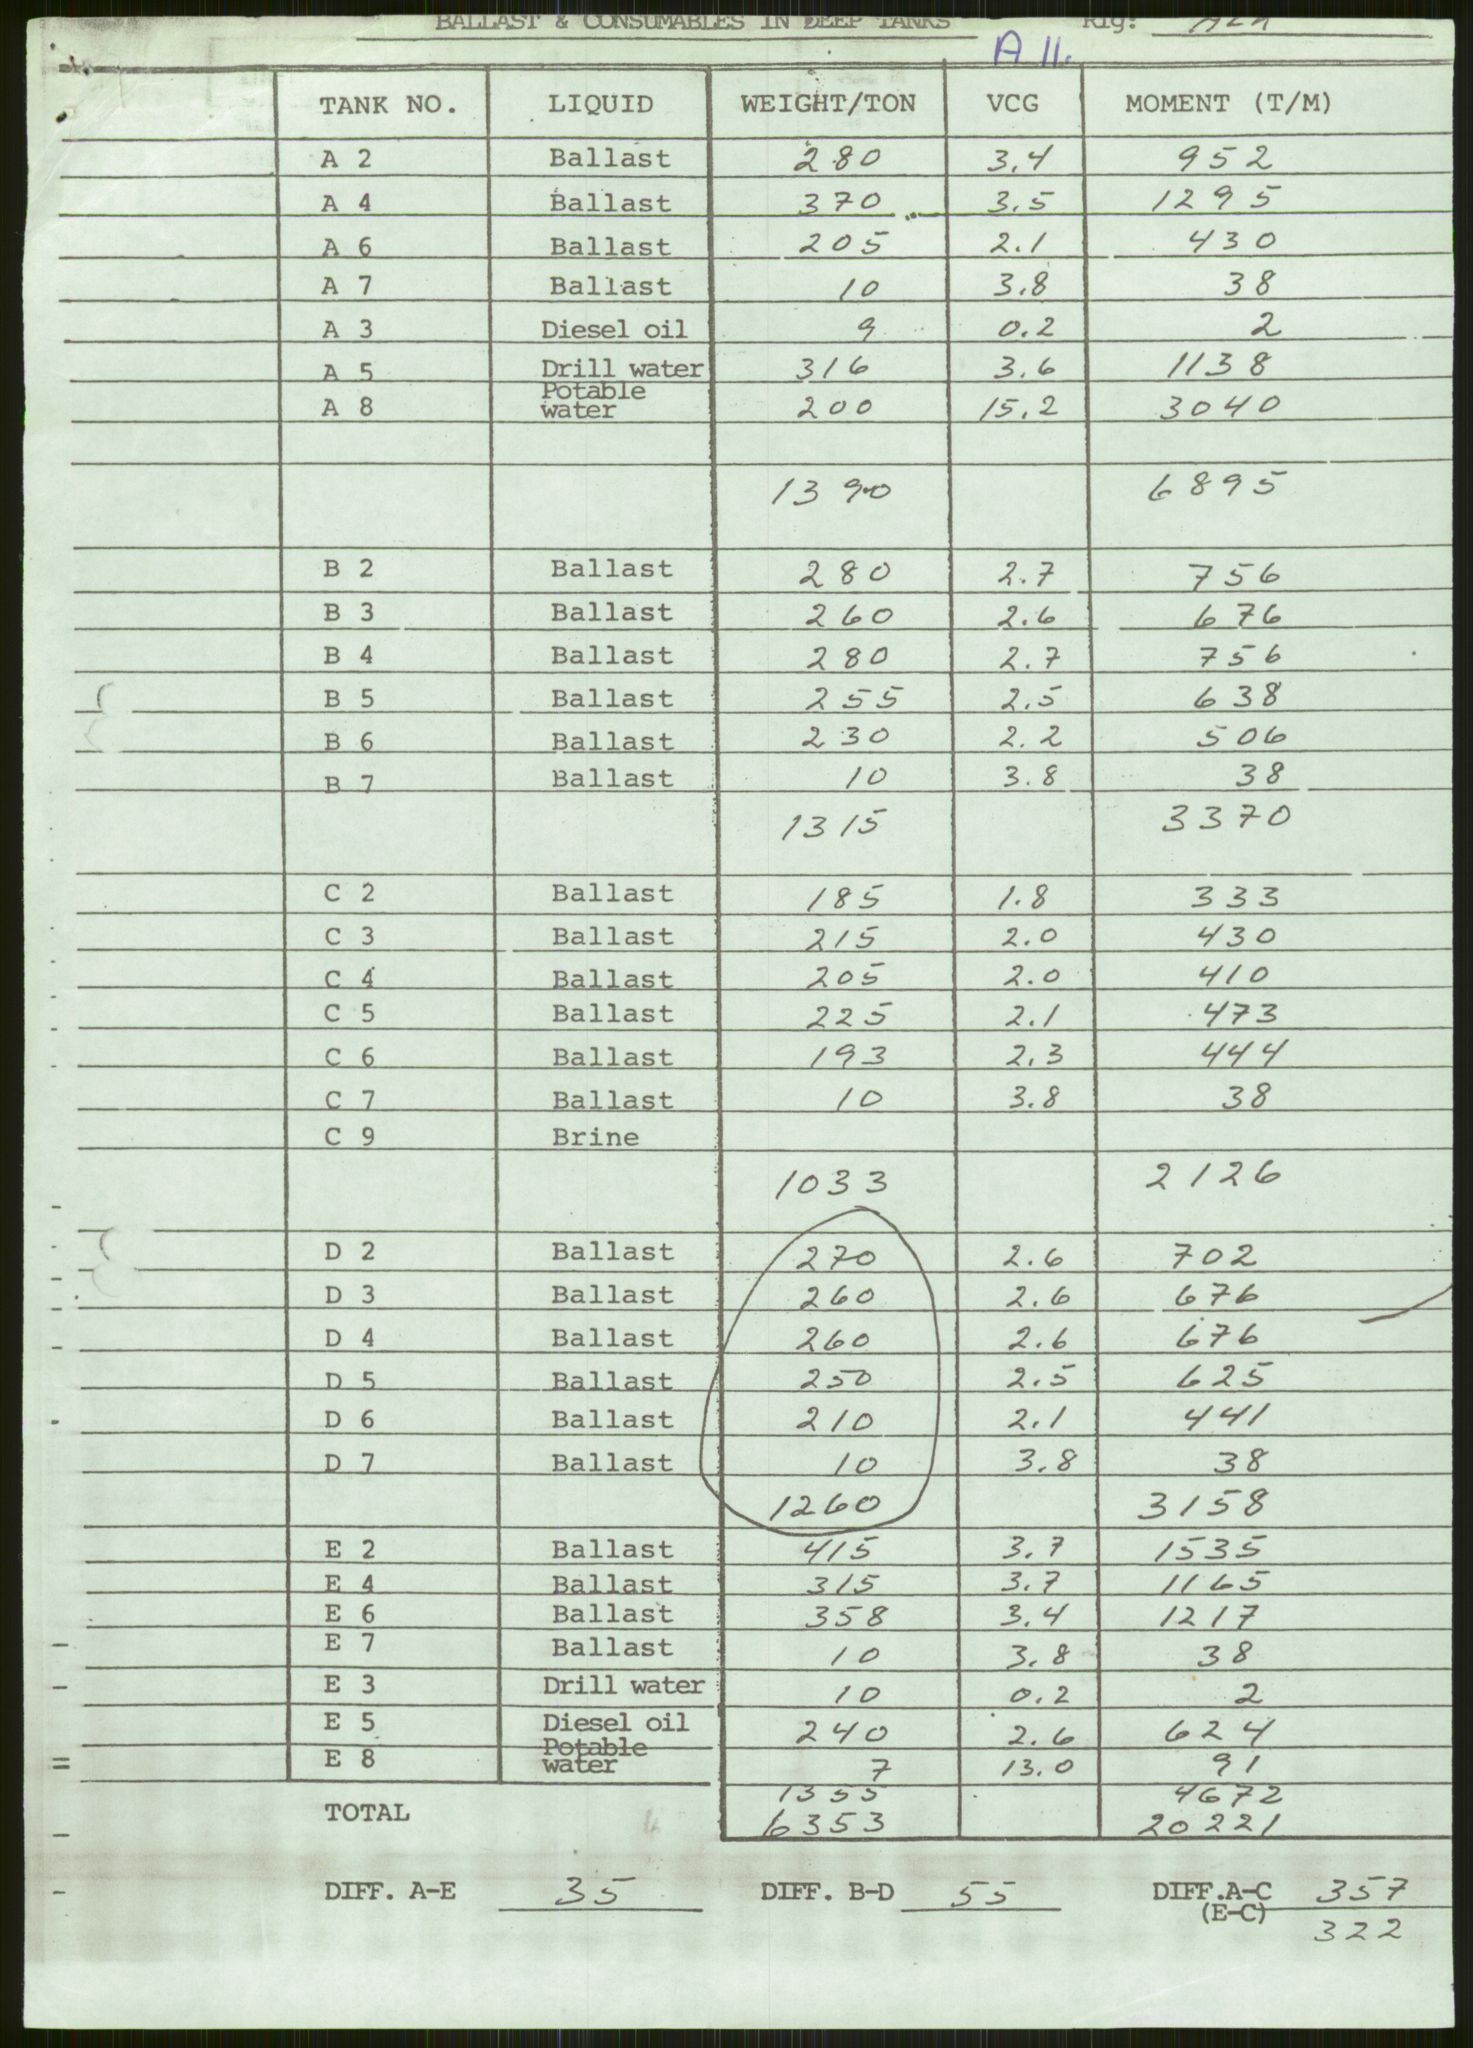 BALLAST & CONSUMABLES IN DEEP TANKS Rig:
A 11.
TANK NO. LIQUID WEIGHT/TON VCG MOMENT (T/M)
A 2 Ballast 280 3.4 952
A 4 Ballast 370 3.5 1295
A 6 Ballast 205 2.1 430
A 7 Ballast 10 3.8 38
A 3 Diesel oil 9 0.2 2
A 5 Drill water 316 3.6 1138
A 8 Potable water 200 15.2 3040
1390 6895
B 2 Ballast 280 2.7 756
B 3 Ballast 260 2.6 676
B 4 Ballast 280 2.7 756
B 5 Ballast 255 2.5 638
B 6 Ballast 230 2.2 506
B 7 Ballast 10 3.8 38
1315 3370
C 2 Ballast 185 1.8 333
C 3 Ballast 215 2.0 430
C 4 Ballast 205 2.0 410
C 5 Ballast 225 2.1 473
C 6 Ballast 193 2.3 444
C 7 Ballast 10 3.8 38
C 9 Brine
1033 2126
D 2 Ballast 270 2.6 702
D 3 Ballast 260 2.6 676
D 4 Ballast 260 2.6 676
D 5 Ballast 250 2.5 625
D 6 Ballast 210 2.1 441
D 7 Ballast 10 3.8 38
1260 3158
E 2 Ballast 415 3.7 1535
E 4 Ballast 315 3.7 1165
E 6 Ballast 358 3.4 1217
E 7 Ballast 10 3.8 38
E 3 Drill water 10 0.2 2
E 5 Diesel oil 240 2.6 624
E 8 Potable water 7 13.0 91
1355 4672
TOTAL 6353 20221
DIFF. A-E 35 DIFF. B-D 55 DIFF.A-C 357
(E-C) 322